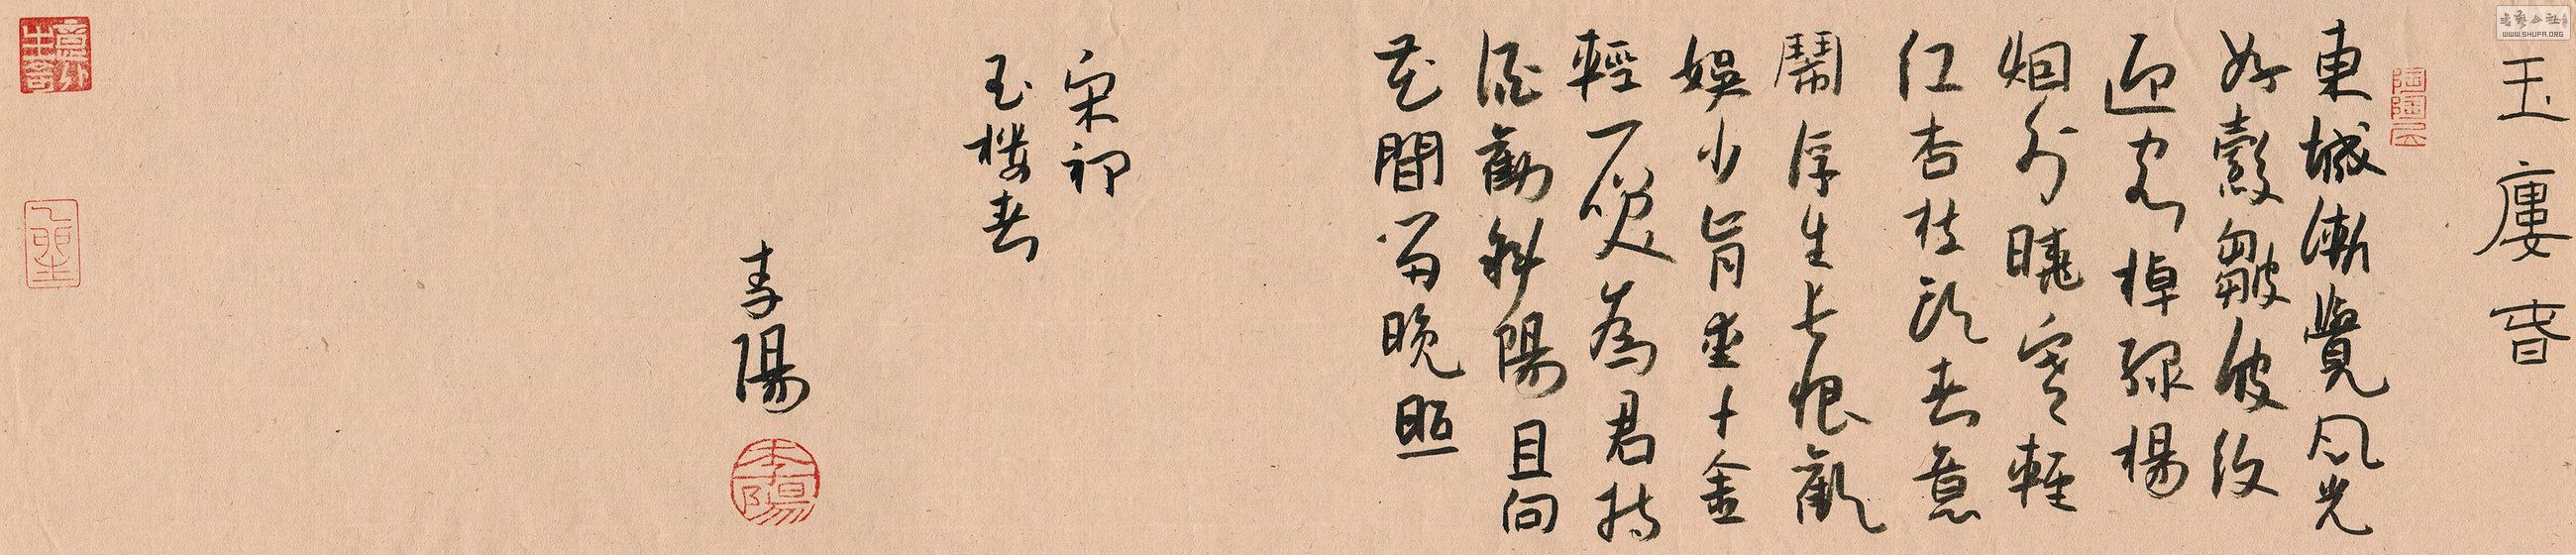 书法公社
WWW.SHUFA.ORG
玉廔旾
東城漸覺風光
好縠皺波紋
迎客棹綠楊
烟外曉寒輕
紅杏枝頭春意
鬧浮生長恨歡
娛少肯愛千金
輕一笑為君持
酒勸斜陽且向
花間留晚照
宋祁
玉樓春
李陽
李陽